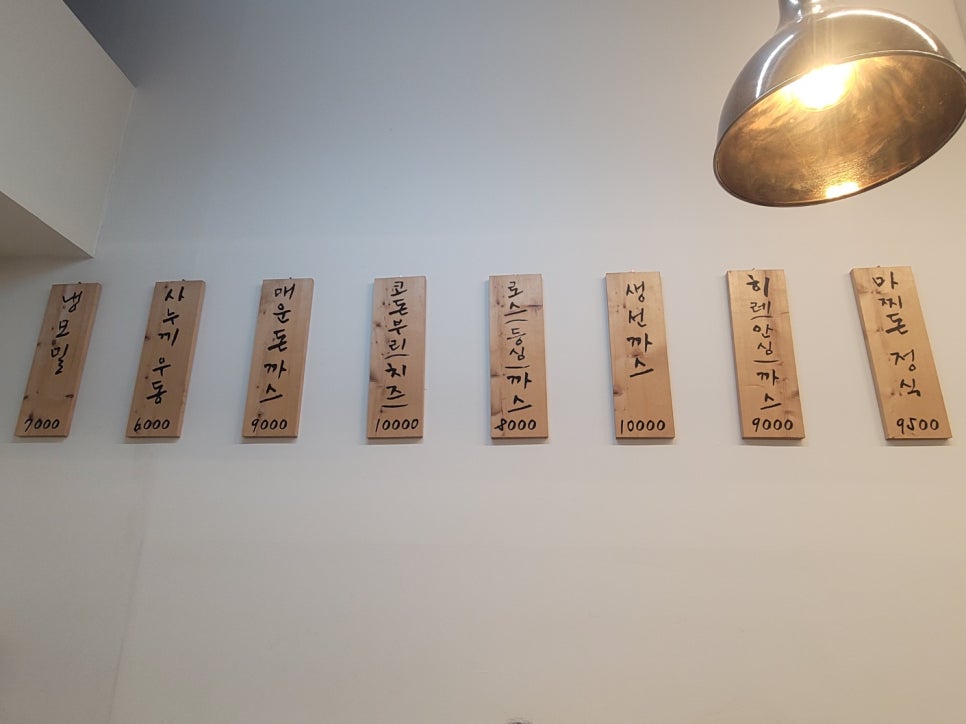 냉모밀
7000
사누끼 우동
6000
매운돈까스
9000
코돈부리(치즈)
10000
로스(등심)까스
8000
생선까스
10000
히레(안심)까스
9000
마찌돈 정식
9500